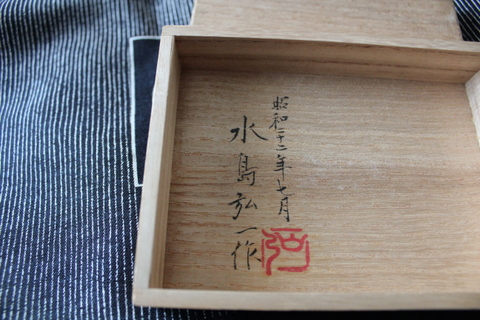 昭和二十二年七月
水島弘一作
弘